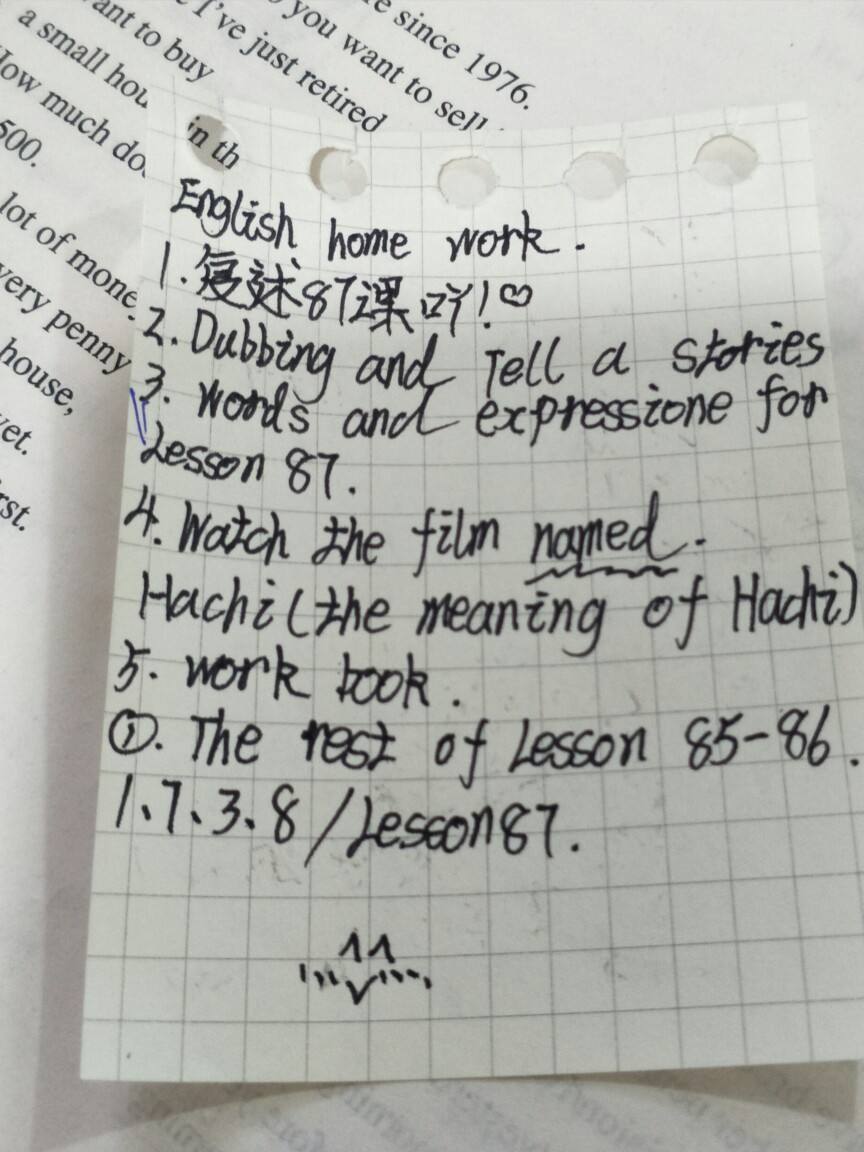 e since 1976.
you want to sell
I've just retired
ant to buy
a small hou
in th
How much do
500.
lot of mone
very penny
house,
yet.
rst.
English home work.
1.复述87课吖!♡
2. Dubbing and Tell a stories
3. Words and expressione for
Lesson 87.
4. Watch the film named.
Hachi(the meaning of Hachi)
5. work book.
①. The rest of Lesson 85-86.
1、7、3、8/Lesson87.